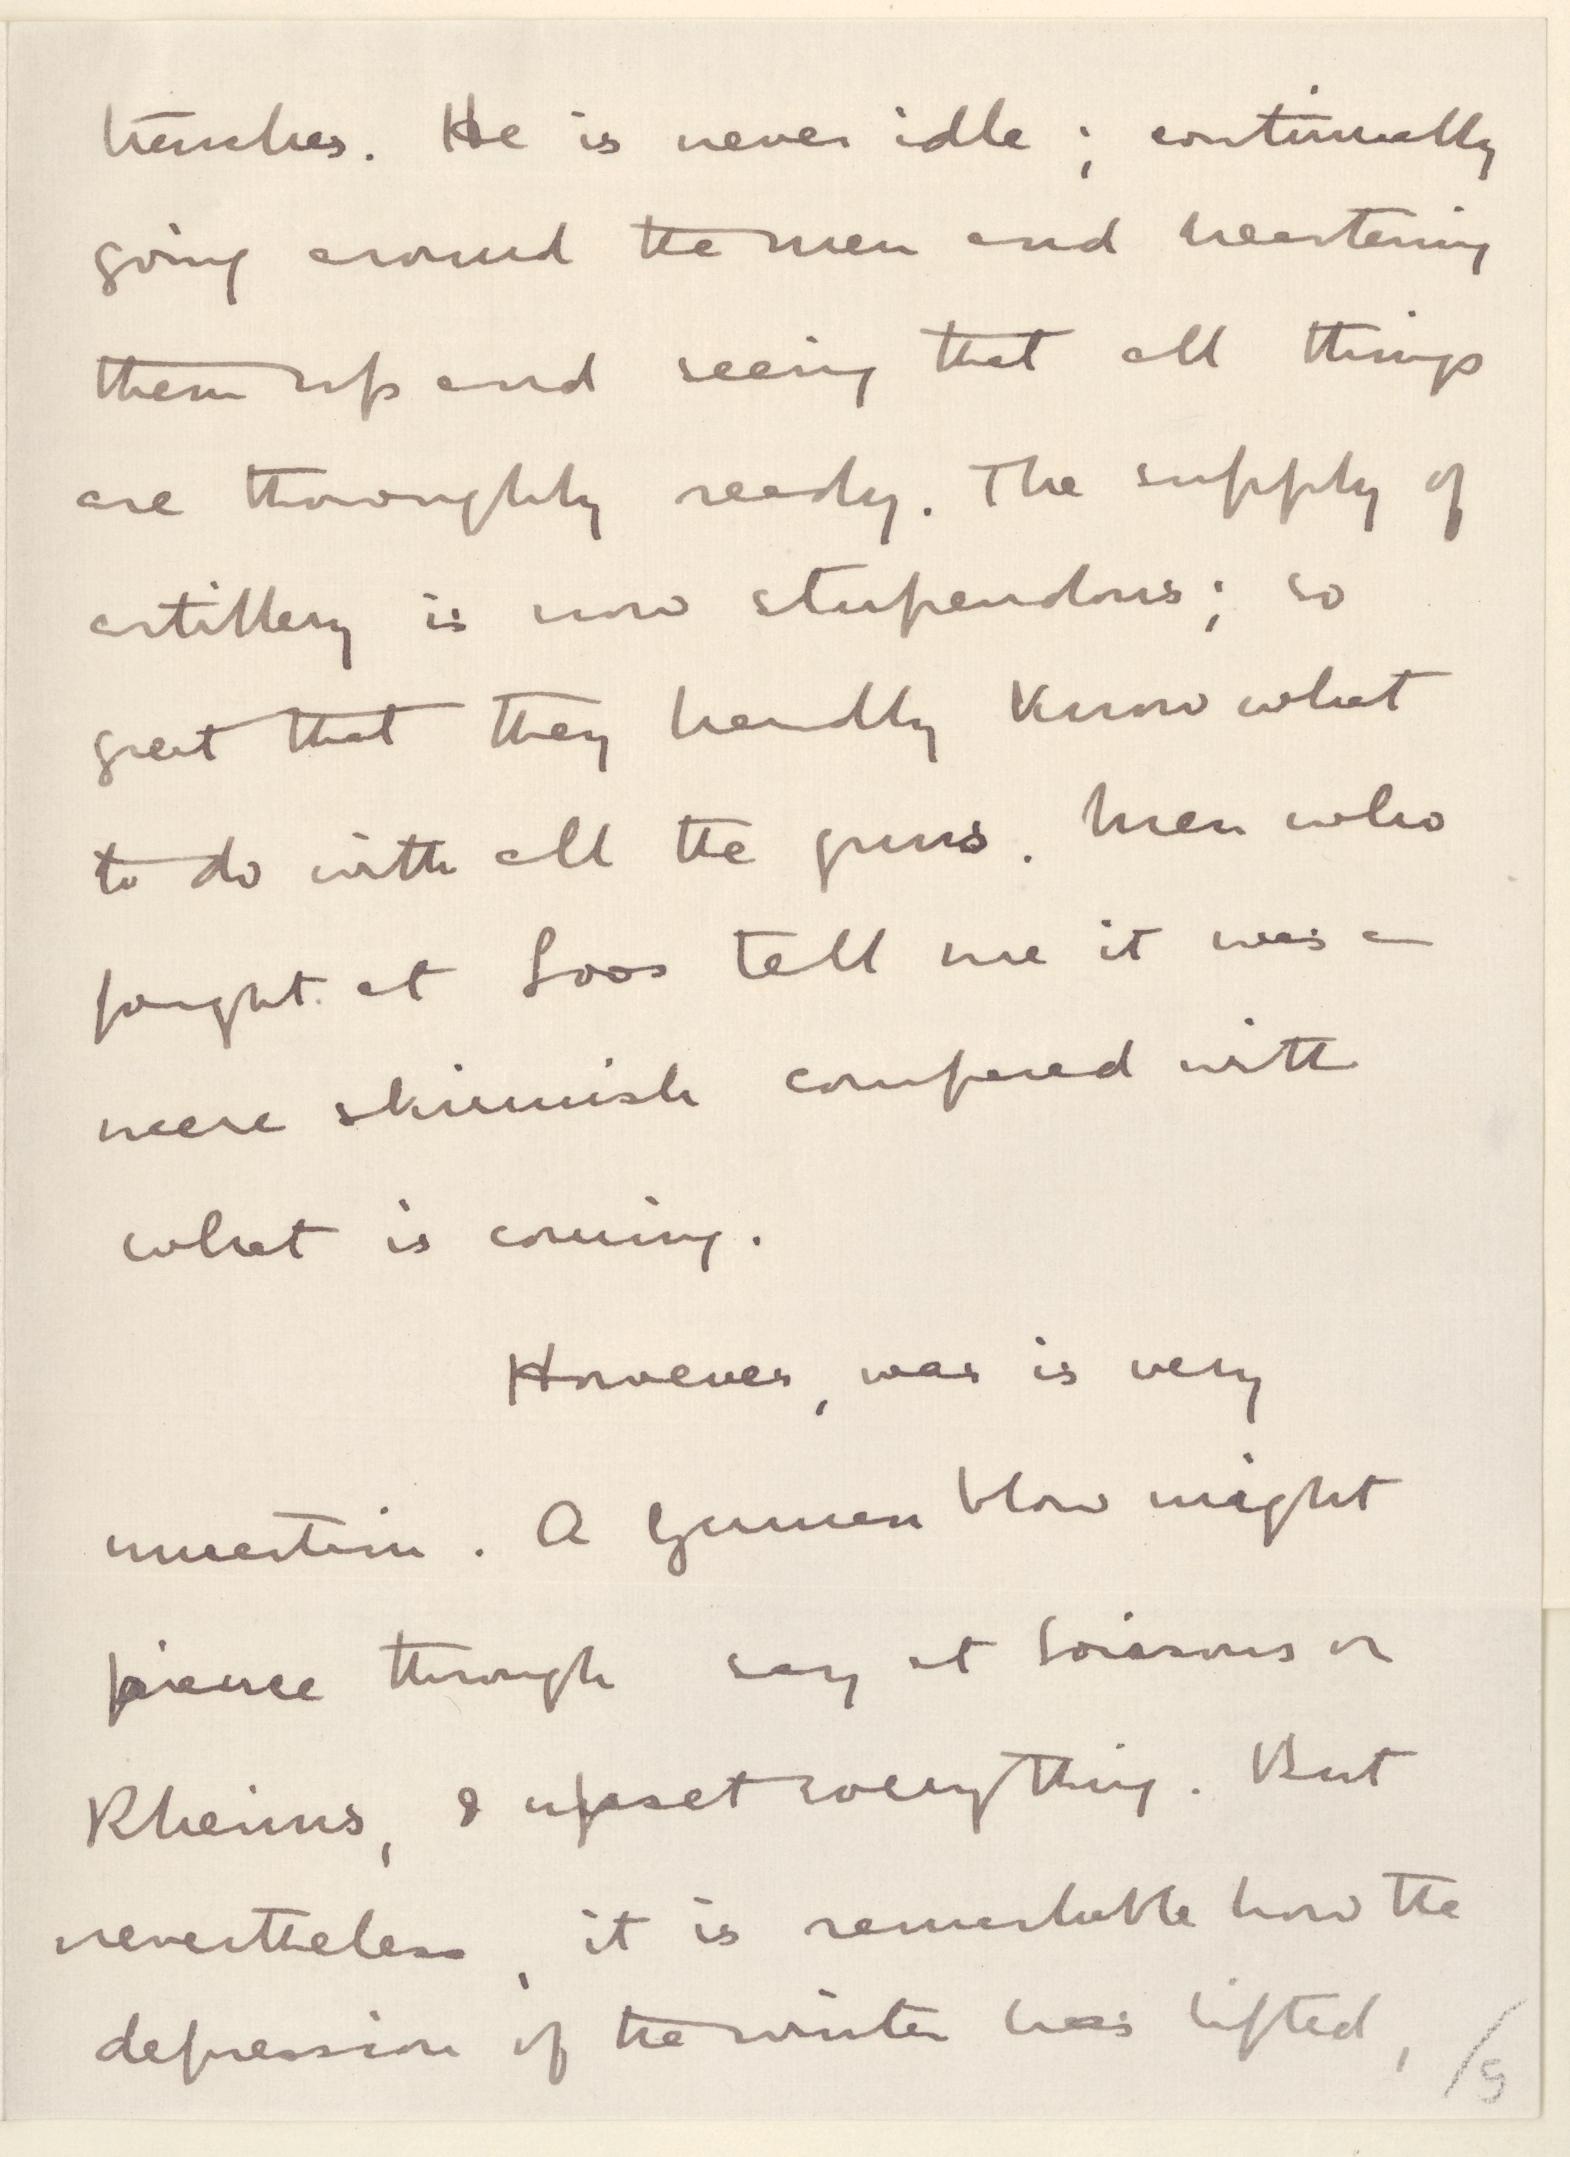 trenches. He is never idle; continually
going around the men and heartening
them up and seeing that all things
are thoroughly ready. The supply of
artillery is now stupendous; so
great that they hardly know what
to do with all the guns. Men who
fought at Loos tell me it was a
mere skirmish compared with
what is coming.
However, war is very
uncertain. A German blow might
pierce through say at Soissons or
Rheims, & upset everything. But
nevertheless, it is remarkable how the
depression of the winter has lifted,
/5